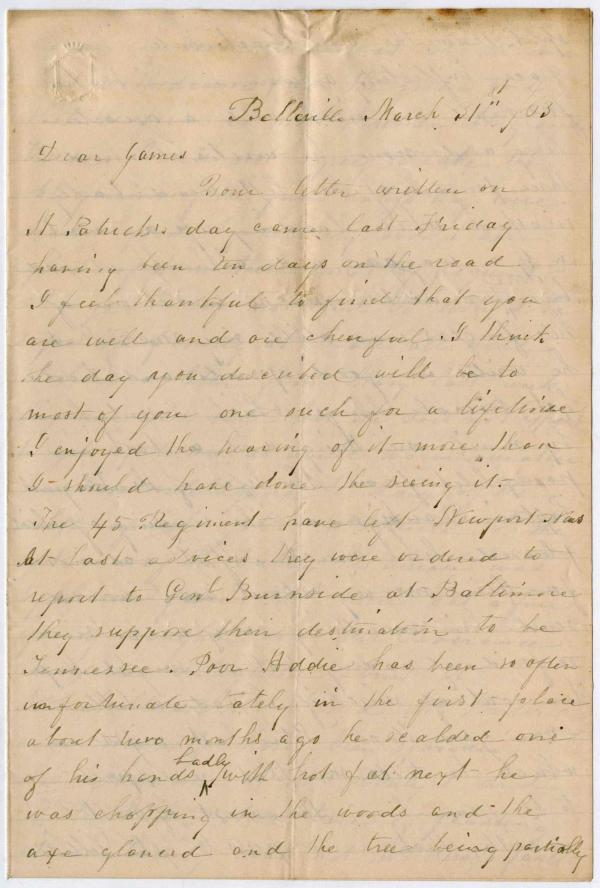 Belleville March 31st /63
Dear James
Your letter written on
St Patrick's day came last Friday
having been ten days on the road
I feel thankful to find that you
are well and are cheerful. I think
the day you described will be to
most of you one such for a lifetime
I enjoyed the hearing of it more than
I should have done the seeing it.
The 45 Regiment have left Newport News
At last advices they were ordered to
report to Genl Burnside at Baltimore
they suppose their destination to be
Tennessee. Poor Addie has been so often
unfortunate lately in the first place
about two months ago he scalded one
of his hands badly with hot fat next he
was chopping in the woods and the
axe glanced and the tree being partially